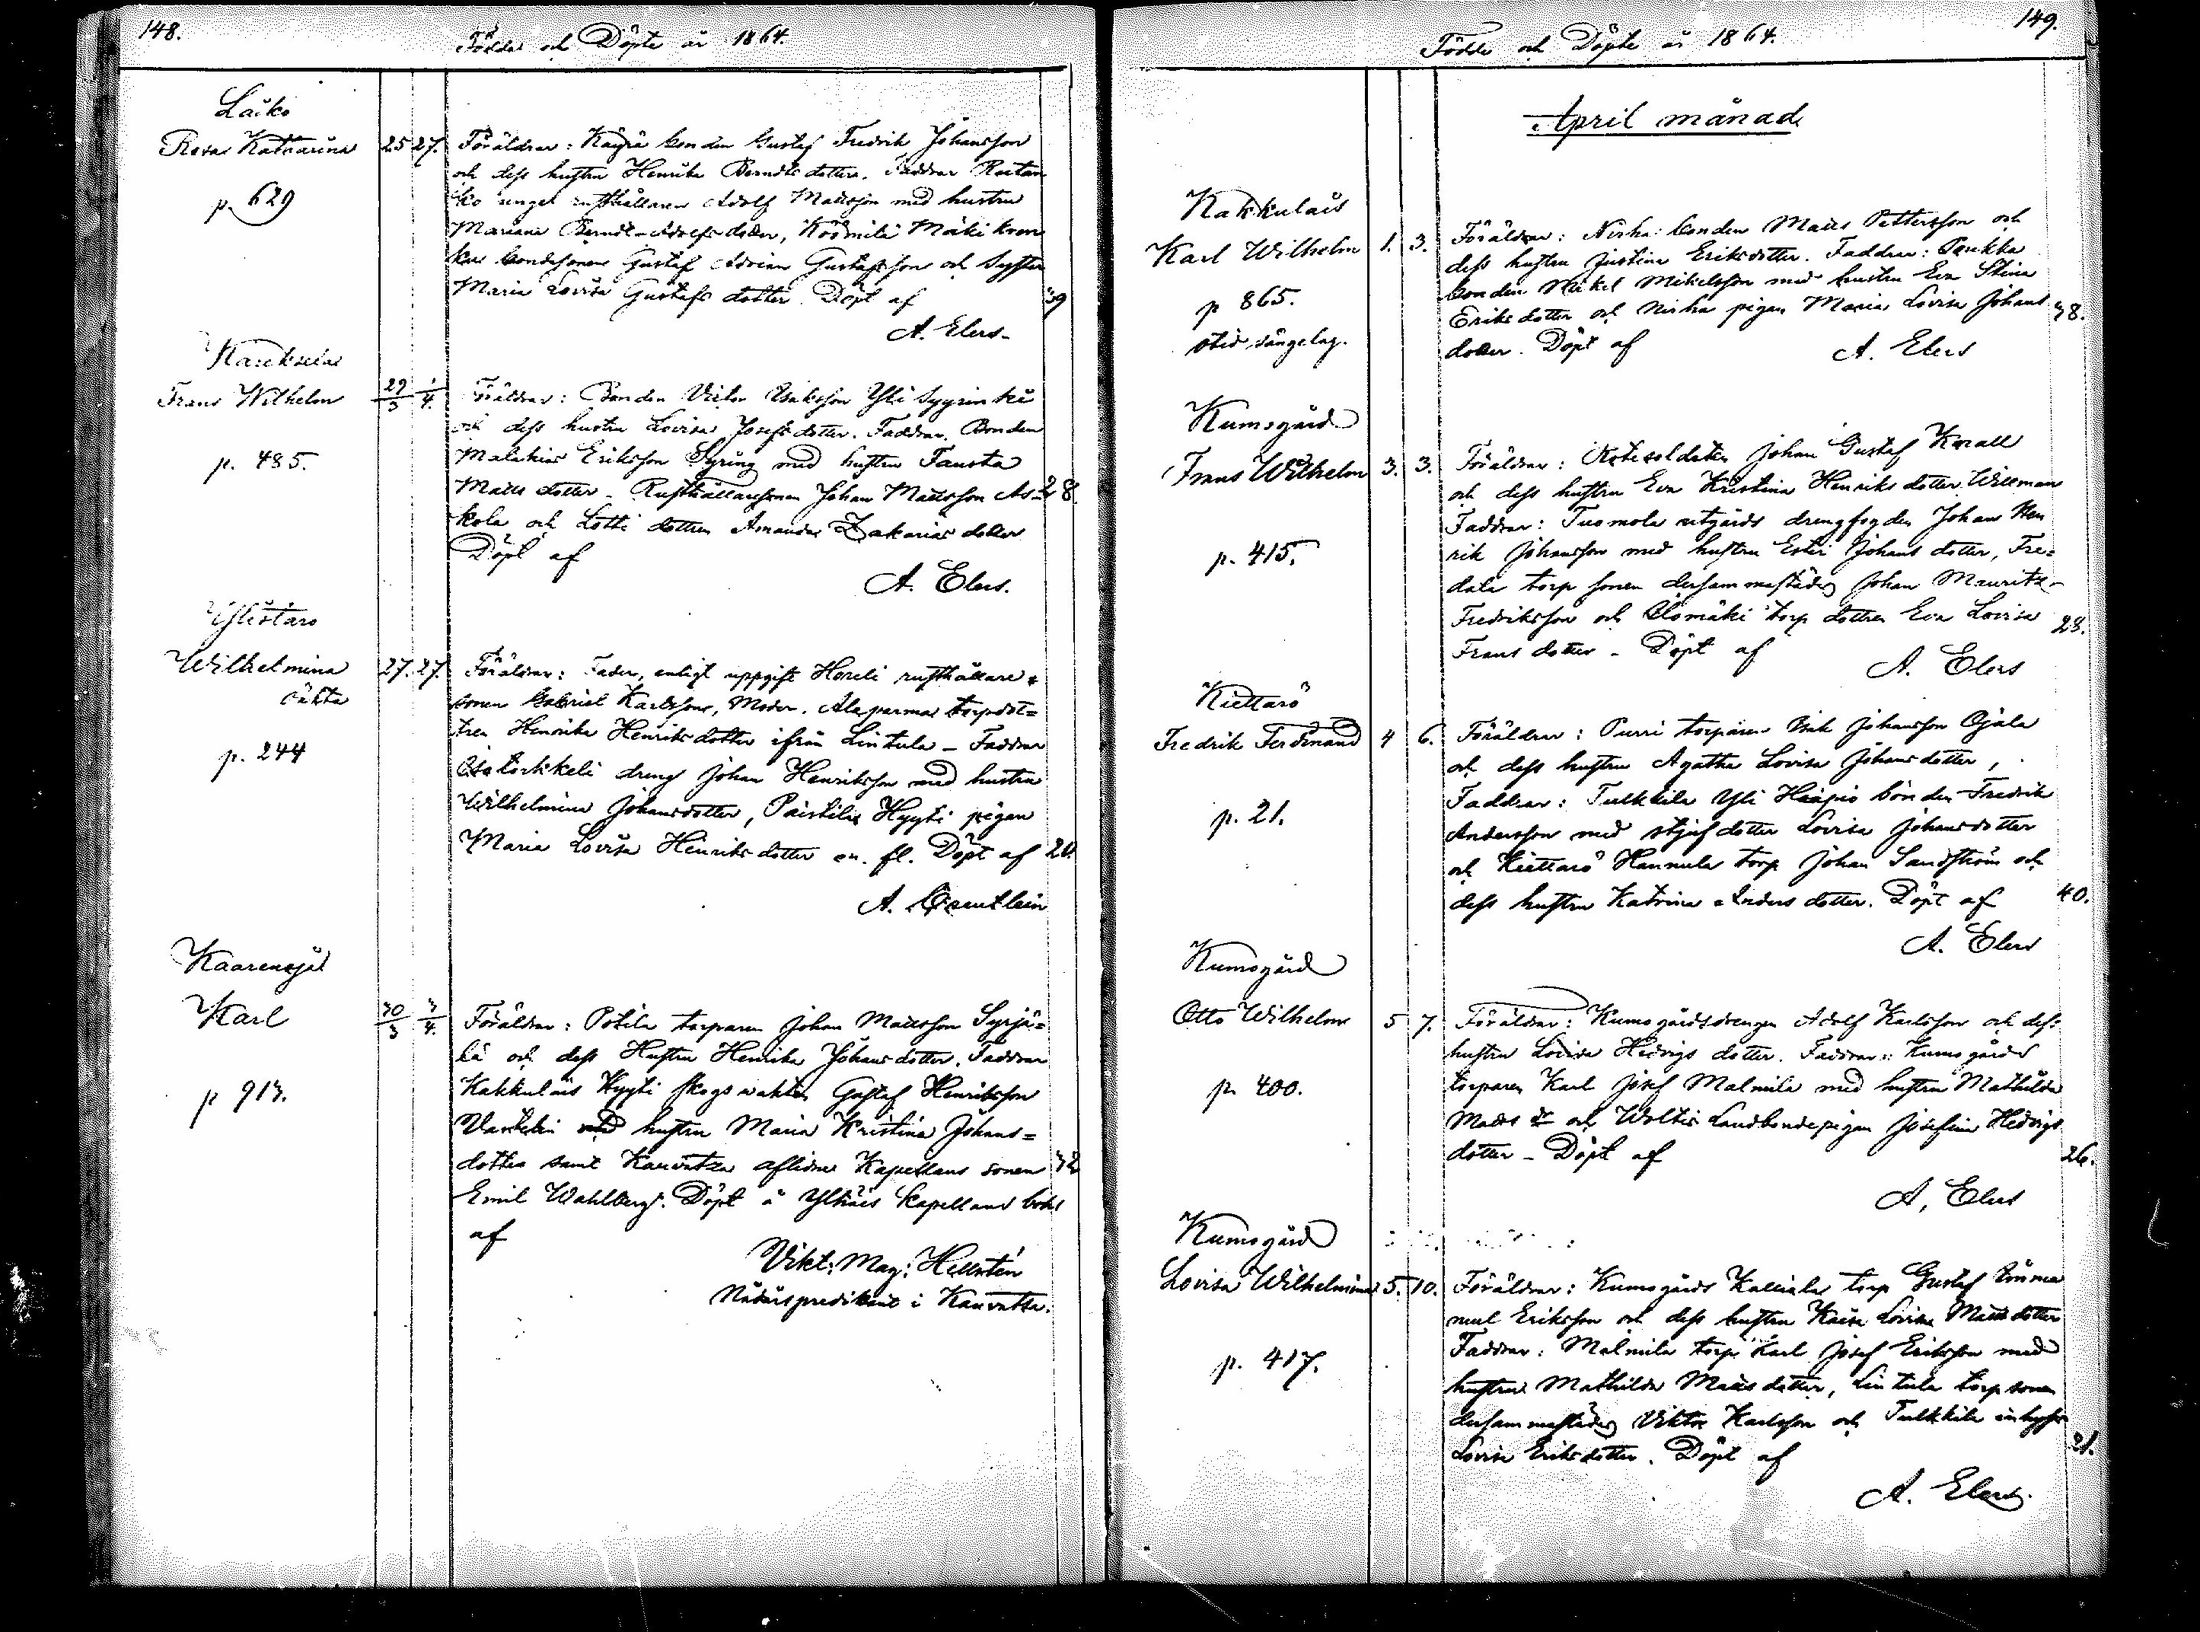 148.
Födde och Döpte år 1864.
Laiko
Rosa Katharina 25 27.
p. 629
Föräldrar: Käyrä bonden Gustaf Fredrik Johansson
och dess hustru Henrika Berndts dotter. Faddrar
unge rusthållaren Adolf Mattsson med hustru
Mariana Berndt-Adolfs dotter, Mäki
bondesonen Gustaf Adrian Gustafsson och syster
Maria Lovisa Gustafs dotter. Döpt af 39
A. Elers.
Frans Wilhelm 29/3 1/4.
p. 485.
Föräldrar: Bonden Victor Isaksson Yli
och dess hustru Lovisa Josefs dotter. Faddrar. Bonden
Malakias Eriksson Syring med hustru Fausta
Matts dotter - Rusthållaresonen Johan Mattsson As- 28.
kola och Lotti dottren Amanda Zakarias dotter
Döpt af
A. Elers.
Ylistaro
Wilhelmina 27. 27.
oäkta
p. 244
Föräldrar: Fader, enligt uppgift rusthållare
sonen Gabriel Karlsson, Moder. torpdot=
tren Henrika Henriks dotter ifrån Lintula - Faddrar
dreng Johan Henriksson med hustru
Wilhelmina Johansdotter, Paistila Hyyti pigan
Maria Lovisa Henriks dotter en. fl. Döpt af 24.
A.
Kaarenoja
Karl 30/3 3/4.
p 913.
Föräldrar: torparen Johan Mattsson Syrjä=
lä och dess Hustru Henrika Johans dotter. Faddrar
Kakkulais Hyyti skogswakten Gustaf Henriksson
med hustru Maria Kristina Johans=
dotter samt Kauvatsa aflidne Kapellans sonen 32
Emil Wahlberg. Döpt å Ylistaro Kapellans bohl
af
Vikt: Mag: Hellstén
Nådårspredikant i Kauvatsa.
149.
Födde och Döpte år 1864.
April månad
Kakkulais
Karl Wilhelm 1. 3.
p 865.
Föräldrar: Nirha bonden Matts Pettersson och
dess hustru Justina Eriksdotter. Faddrar: Penkka
bonden Mikel Mikelsson med hustru Eva Stina
Eriks dotter och Nirha pigan Maria Lovisa Johans 38.
dotter. Döpt af
A. Elers
Kumogård
Frans Wilhelm 3. 3.
p. 415.
Föräldrar: Johan Gustaf Korall
och dess hustru Eva Kristina Henriks dotter Willman
Faddrar: Tuomola utgårds drengfogden Johan Hen
rik Johansson med hustru Ester Johans dotter, Fre=
dala torp sonen dersammastädes Johan Mauritz
Fredriksson och torp dottren Eva Lovisa 23.
Frans dotter - Döpt af
A. Elers
Kiettarö
Fredrik Ferdinand 4 6.
p. 21.
Föräldrar: Purri torparen Isak Johansson Ojala
och dess hustru Agatha Lovisa Johans dotter,
Faddrar: Tulkkila Yli Haapio bonden Fredrik
Andersson med stjufdotter Lovisa Johansdotter
och Kiettarö Hannula torp Johan Sandström och
dess hustru Katrina Anders dotter. Döpt af 40.
A. Elers
Kumogård
Otto Wilhelm 5 7.
p. 400.
Föräldrar: Kumogårdsdrengen Adolf Karlsson och dess
hustru Lovisa Hedvigs dotter. Faddrar: Kumogårds
torparen Karl Josef Malmila med hustru Mathilda
Matts dr och Woltis Landbondepigan Josefina Hedvigs
dotter - Döpt af 26.
A. Elers
Kumogård
Lovisa Wilhelmina 5. 10.
p. 417.
Föräldrar: Kumogårds Kalliala torp Gustaf Emma
nuel Eriksson och dess hustru Kaisa Lovisa Matts dotter
Faddrar: Malmila torp Karl Josef Eriksson med
hustru Mathilda Matts dotter, Lintula torp sonen
dersammastädes Viktor Karlsson och Tulkkila inhyses
Lovisa Eriksdotter. Döpt af 21.
A. Elers.